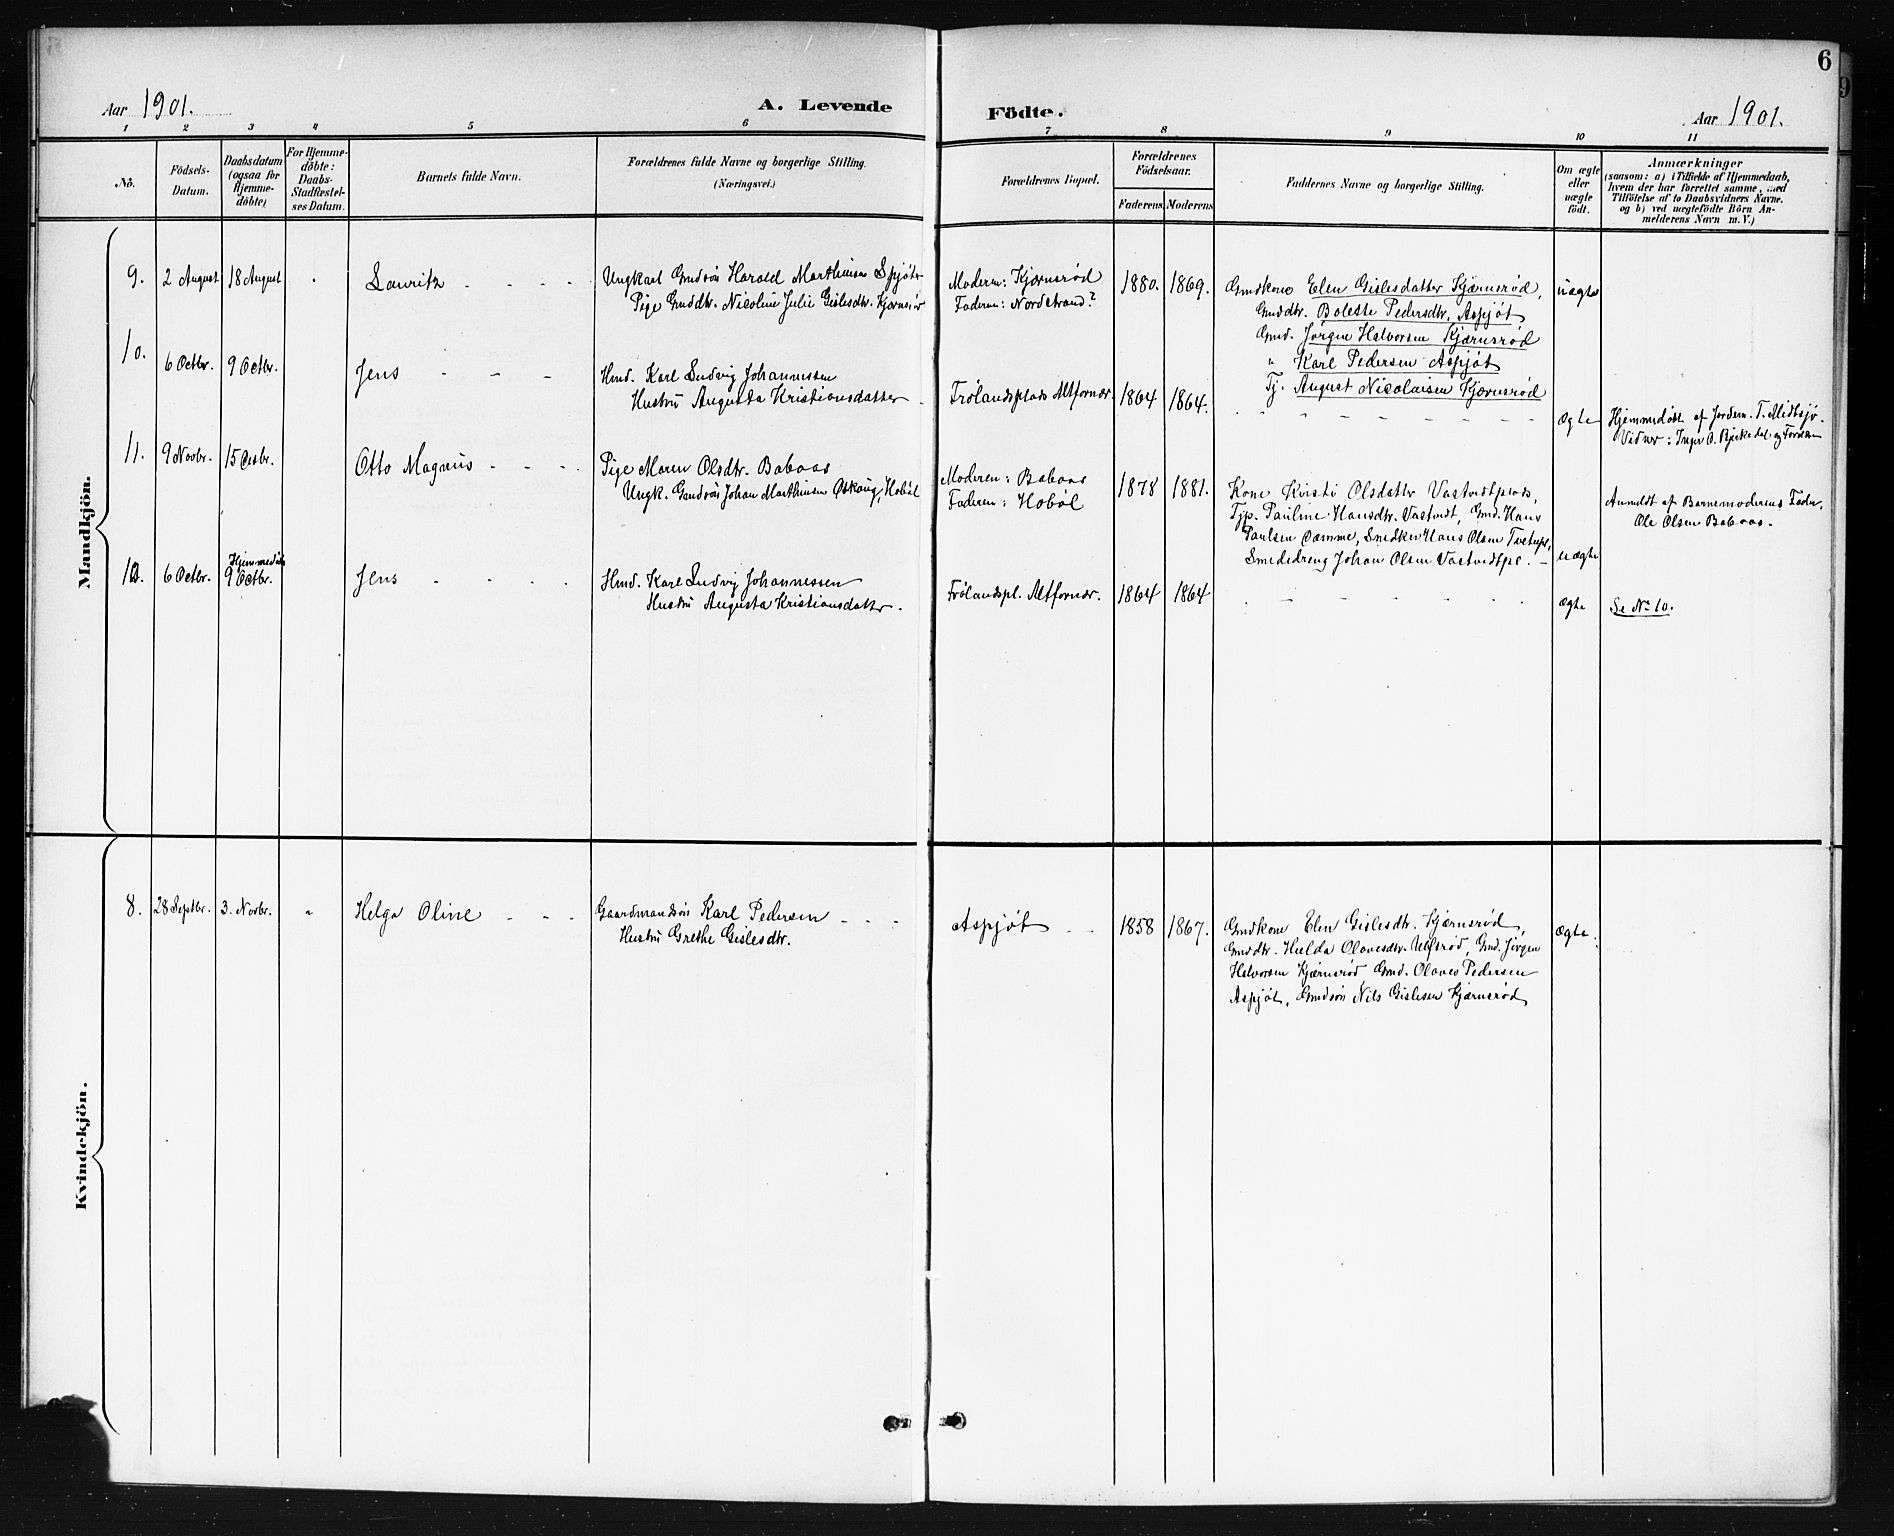 6
Aar 1901.
A. Levende
Födte.
Aar 1901.
1 2 3 4 5 6 7 8 9 10 11
No.
Födsels-
Datum.
Daabsdatum
(ogsaa for
Hjemme-
döbte)
For Hjemme-
döbte:
Daabs-
Stadfæstel-
ses Datum.
Barnets fulde Navn.
Forældrenes fulde Navne og borgerlige Stilling.
(Næringsvei.)
Forældrenes Bopæl.
Forældrenes
Födselsaar.
Faderens Moderens
Faddernes Navne og borgerlige Stilling.
Om ægte
eller
uægte
födt.
Anmærkninger
(saasom: a) i Tilfælde af Hjemmedaab,
hvem der har forrettet samme, med
Tilföielse af to Daabsvidners Navne.
og b) ved uægtefödte Börn An-
melderens Navn m. V.)
Mandkjön.
9. 2 August 18 August Lauritz
Ungkarl Gmdsön Harald Marthinsen Spjøtø
Pige Gmddtr. Nicoline Julie Gislesdtr. Kjærnsrø
Moderen: Kjærnsrød
Faderen: Nordstrand?
1880. 1869.
Gmdkone Elen Gislesdatter Kjærnsrød,
Gmddtr. Bolette Pedersdtr. Aspjøt
Gmd. Jørgen Halvorsen Kjærnsrød
" Karl Pedersen Aspjøt
Tj. August Nicolaisen Kjærnsrød
uægte
10. 6 Octbr. 9 Octbr. Jens
Hmd. Karl Ludvig Johannessen
Hustru Augusta Kristiansdatter
Frølandsplads Altfornær. 1864 1864. ægte
Hjemmedøbt af Jordem. T. Midtsjø.
Vidner: Inger O. Bjerkedal og Forældrene
11. 9 Novbr. 15 Decbr. Otto Magnus
Pige Maren Olsdtr. Babaas
Ungk. Gmdsön Johan Marthinsen Oskaug, Hobøl
Moderen: Babaas
Faderen: Hobøl
1878 1881.
Kone Kristi Olsdatter Vastvedtplads,
Tjp. Pauline Hansdtr. Vastvedt, Gmd. Hans
Paulsen Damme, Snedker Hans Olsen Tvetepl,
Smededreng Johan Olsen Vastvedtpl.
uægte
Anmeldt af Barnemoderens Fader,
Ole Olsen Babaas.
12. 6 Octbr. Hjemmedøbt
9 Octbr. Jens
Hmd. Karl Ludvig Johannessen
Hustru Augusta Kristiansdatter.
Frølandspl. Altfornær. 1864 1864 ægte Se No 10.
Kvindekjön.
8. 28 Septbr. 3. Novbr. " Helga Oline
Gaardmandsön Karl Pedersen
Hustru Grethe Gislesdtr.
Aspjøt 1858 1867.
Gmdkone Elen Gislesdtr. Kjærnsrød,
Gmddtr. Hulda Olavesdtr. Ulfsrød, Gmd. Jörgen
Halvorsen Kjærnsrød Gmd. Olaves Pedersen
Aspjøt, Gmdsön Nils Gislesen Kjærnsrød
ægte.